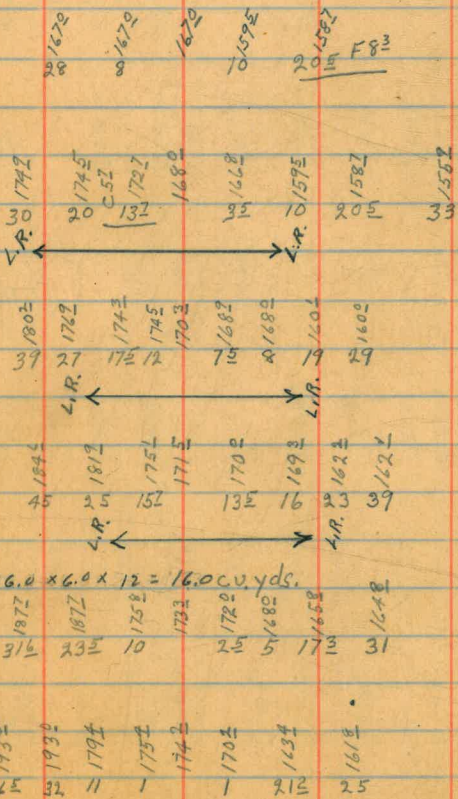 167⁰ 167⁰ 167⁰ 159⁵ 158⁷
28 8 10 20⁵ F8³
174⁹ 174⁵ C5⁷ 172⁷ 168⁰ 166⁸ 159⁵ 158⁷ 155²
30 20 13⁷ 3⁵ 10 20⁵ 33
L.R. L.R.
180² 176⁹ 174³ 174⁵ 170³ 168⁹ 168⁰ 160² 160⁰
39 27 17⁵ 12 7⁵ 8 19 29
L.R. L.R.
184⁶ 181⁹ 175¹ 171⁵ 170⁰ 169³ 162³ 162¹
45 25 15⁷ 13⁵ 16 23 39
L.R. L.R.
6.0 x 6.0 x 12 = 16.0 cu. yds.
187⁷ 187⁷ 175⁸ 173³ 172⁰ 168⁰ 165⁸ 164⁸
31⁶ 23⁵ 10 2⁵ 5 17³ 31
193⁰ 179⁴ 175⁴ 174² 170² 163⁴ 161⁸
32 11 1 1 21² 25